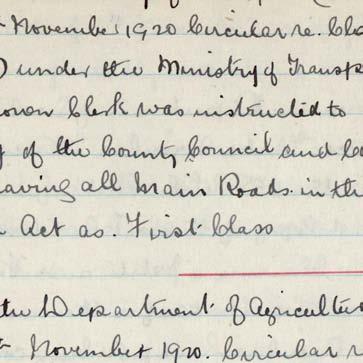 November 1920 Circular re. Cla
) under the Ministry of Transp
own Clerk was instructed to
of the County Council and C
aving all Main Roads in the
Act as. First Class
the Department of Agricultu
November 1920. Circular r